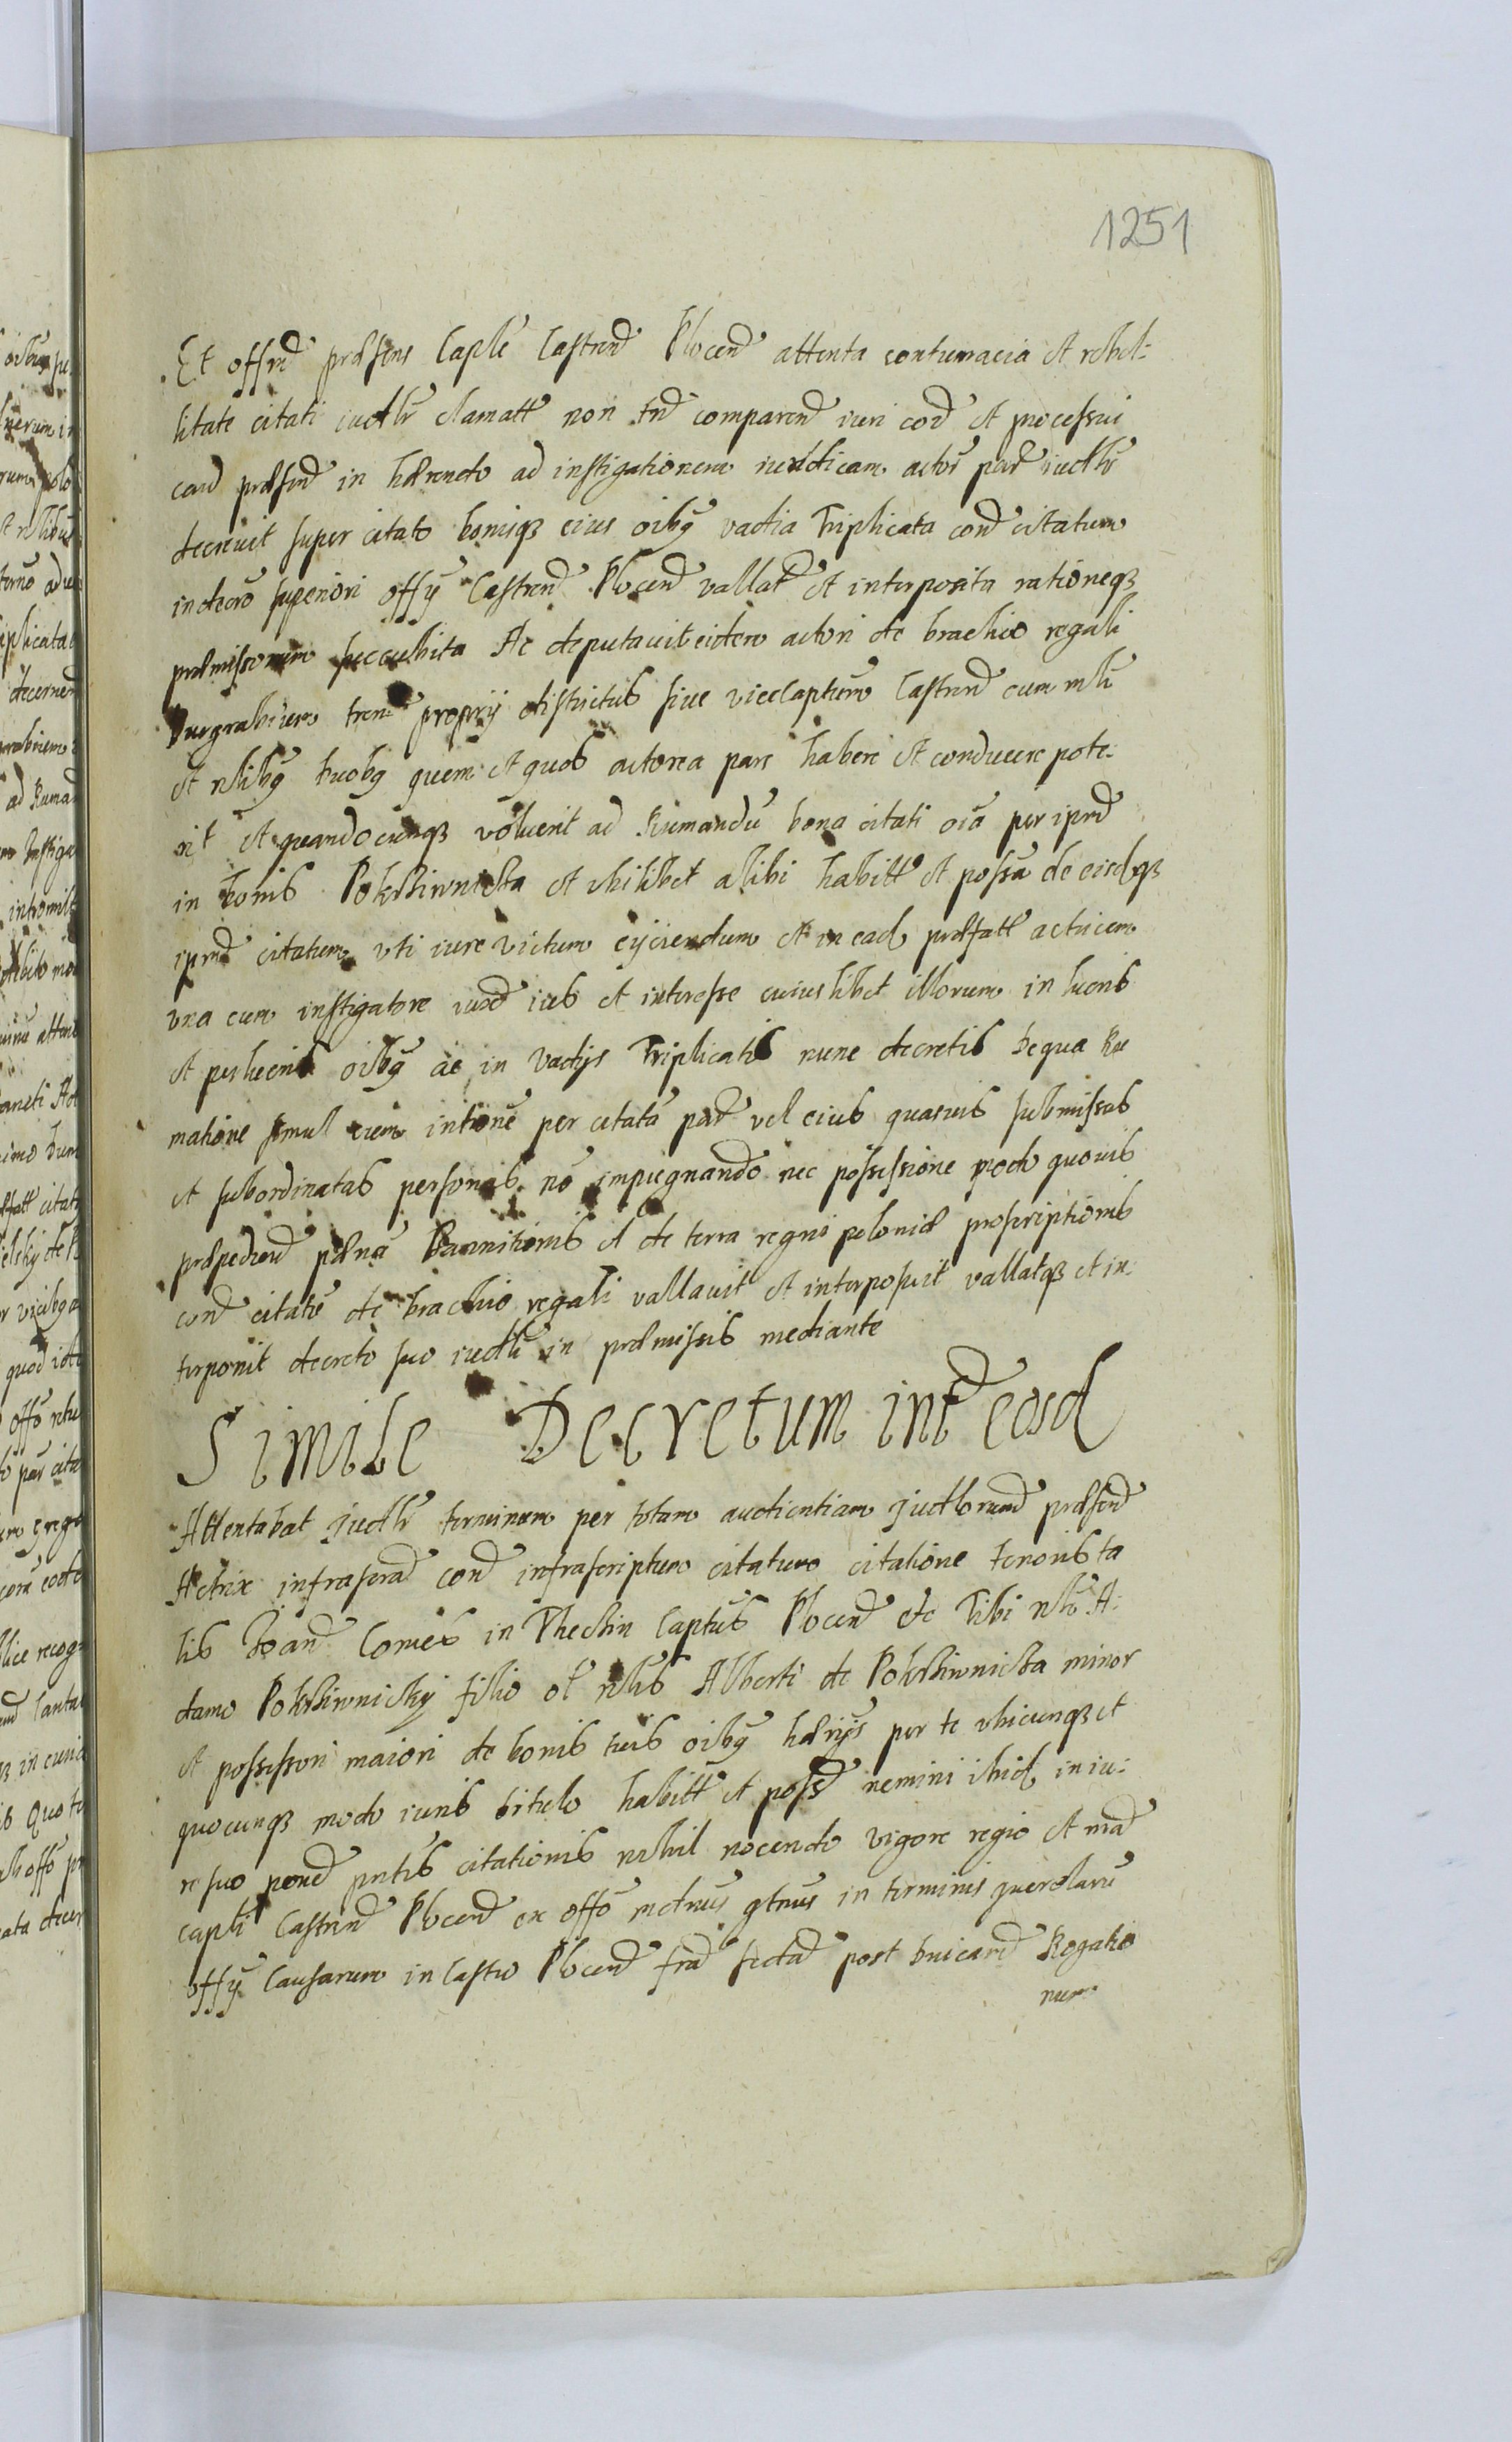 1251
Et offiu praesens Caple Castren Plocen attenta contumacia et rebel:
litate citati iudlr clamatt non tn comparen iuri cod et processui
caus praesen in haerendo ad instigationem iuridicam actor par iudlr
decreuit super citato bonisq eius oibq vadia Triplicata con citatum
in decro superiori offy Castren Plocen vallat et interposita rationeq
praemissorum succubita Ac deputauit eidem actori de brachio regali
Burgrabium proprij districtus siue viceCaptum Castren cum mli
et nlibq duobq quem et quos actorea pars habere et conducere pote:
rit et quandocunq voluerit ad Rumandu bona citati oia per ipm
in bonis Pokrziwnicza et vbilibet alibi habitt et possa de eisdq
ipm citatum vti iure victum eijciendum et in ead praefatt actricem
vna cum instigatore iux ius et interesse cuiuslibet illorum in lucris
et perlucris oibq ac in vadijs Triplicatis nunc decretis De qua Ru
matione simul cum intione per citata par vel eius quasuis submissas
et subordinatas personas no impugnando nec possessione modo quouis
praepedien paena Bannitionis et de terra regni poloniae proscriptionis
con citatu de brachio regali vallauit et interposuit vallatq et in:
terponit decreto suo iudli in praemissis mediante
Simile Decretum int eosd
Attentabat Judlr terminum per totam audientiam Judlorum praesen
Actrix infrascra con infrascriptum citatum citatione tenoris ta
lis Joan Comes in Thechin Captus Plocen etc Tibi nlo A:
damo Pokrziwnicky filio ol nlis Alberti de Pokrziwnicza minor
et possessori maiori de bonis tuis oibq haerijs per te vbicunq et
quocunq modo iuris titulo habitt et poss nemini ibid in iu:
re suo pond pntis citationis nihil nocendo vigore regio et ma
capli Castren Plocen ex offo in terminis querelaru
offy Causarum in Castro Plocen fra secda post Dnicam Rogatio
num